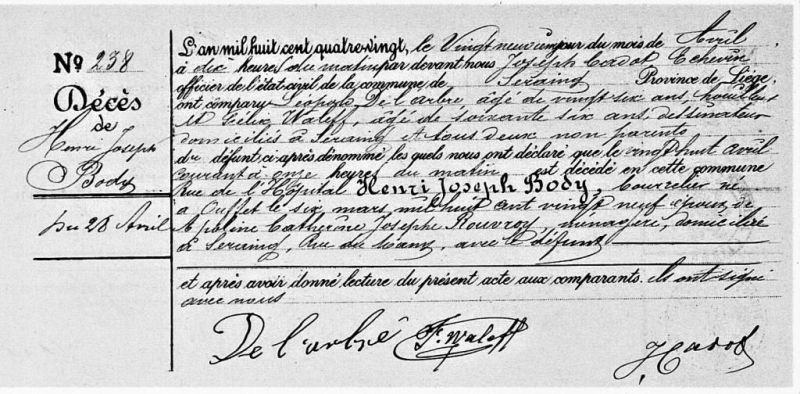 Nº 238
Décès
de
Henri Joseph
Body
Du 28 Avril
L'an mil huit cent quatre-vingt, le Vingt neuvième jour du mois de Avril
à dix heures du matin par devant nous Joseph Cadot Echevin
officier de l'état-civil de la commune de Seraing Province de Liége,
ont comparu Léopold De l'arbre, âgé de vingt six ans, houilleur
M Félix Waleff, âgé de soixante six ans, dessinateur
domiciliés à Seraing et tous deux non parents
du défunt ci-après dénommé les quels nous ont déclaré que le vingt huit avril
courant à onze heures du matin est décédé en cette commune
Rue de l'Hôpital Henri Joseph Body, bourrelier né
à Ouffet le six mars mil huit cent vingt neuf époux de
Apoline Catherine Joseph Rouvroy, ménagère, domiciliée
à Seraing, Rue du avec le défunt
et après avoir donné lecture du présent acte aux comparants. ils ont signé
avec nous
De l'arbré F. Waleff
J Cadot